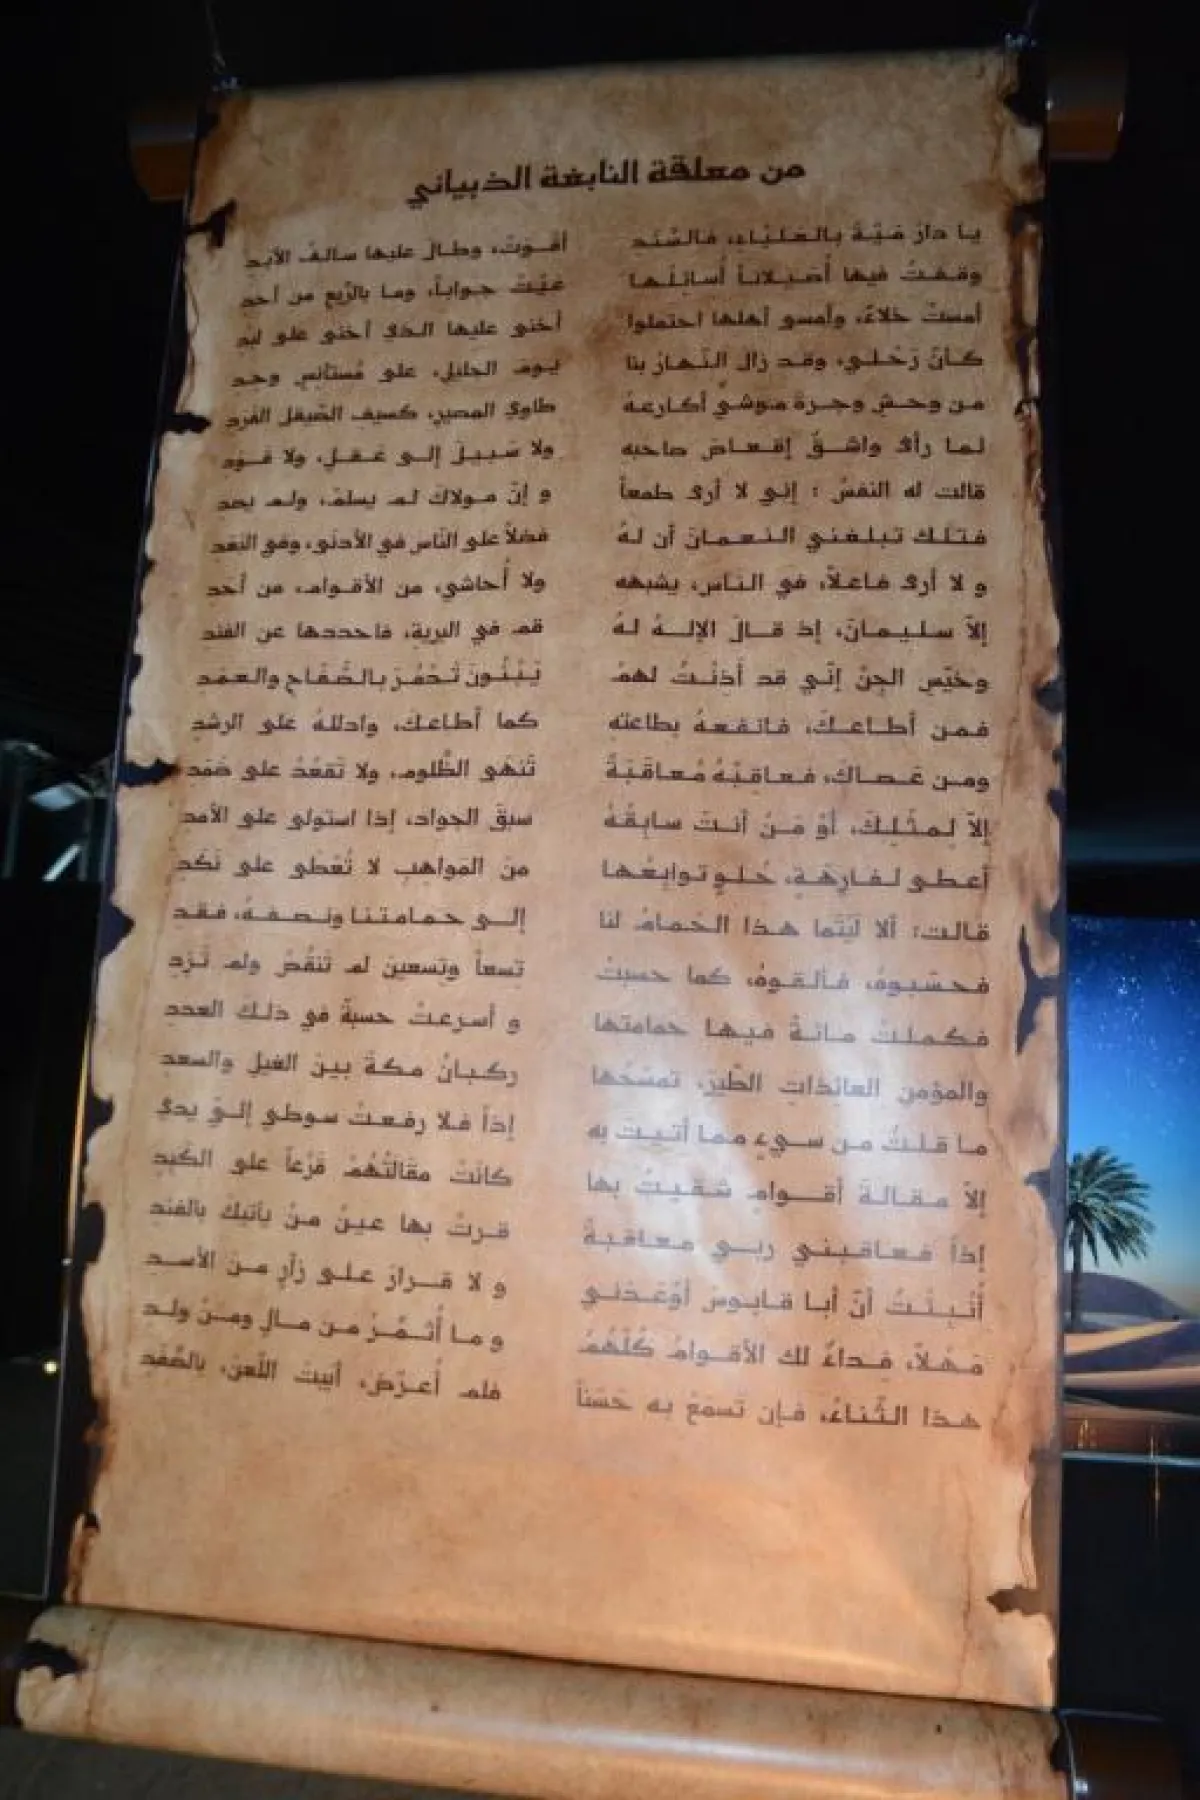 من معلقة النابغة الذبياني
يا دارَ مَيّةَ بالعَليْاءِ، فالسَّنَدِ أقْوَتْ، وطالَ عليها سالفُ الأبَدِ
وقفتُ فيها أُصَيلاناً أُسائِلُها عَيّتْ جواباً، وما بالرَّبعِ من أحدِ
أمستْ خلاءً، وأمسى أهلها احتملوا أخنى عليها الذي أخنى على لبدِ
كأنّ رَحْلي، وقد زالَ النّهارُ بنا يومَ الجليلِ، على مُستأنِسٍ وحِدِ
من وحشِ وجرةَ موشيٍّ أكارعهُ طاوي المصيرِ، كسيفِ الصّيقل الفَرَدِ
لما رأى واشقٌ إقعاصَ صاحبه ولا سَبيلَ إلى عَقلٍ، ولا قَوَدِ
قالت له النفسُ : إني لا أرى طمعاً و إنّ مولاكَ لم يسلمْ، ولم يصدِ
فتلك تبلغني النعمانَ أن لهُ فضلاً على النّاس في الأدنَى، وفي البَعَدِ
و لا أرى فاعلاً، في الناس، يشبهه ولا أُحاشي، من الأقوام، من أحدِ
إلاّ سليمانَ، إذ قالَ الإلهُ لهُ قم في البريةِ، فاحددها عن الفندِ
وخيّسِ الجِنّ إنّي قد أَذِنْتُ لهمْ يَبْنُونَ تَدْمُرَ بالصُّفّاحِ والعمَدِ
فمن أطاعكَ، فانفعهُ بطاعته كما أطاعكَ، وادللهُ على الرشدِ
ومن عَصاكَ، فعاقِبْهُ مُعاقَبَةً تَنهَى الظَّلومَ، ولا تَقعُدْ على ضَمَدِ
إلاّ لِمثْلِكَ، أوْ مَنْ أنتَ سابِقُهُ سبقَ الجوادِ، إذا استولى على الأمدِ
أعطى لفارِهَةٍ، حُلوٍ توابِعُها منَ المَواهِبِ لا تُعْطَى على نَكَدِ
قالت: ألا لَيْتَما هذا الحَمامُ لنا إلى حمامتنا ونصفهُ، فقدِ
فحسّبوهُ، فألقوهُ، كما حسبتْ تِسعاً وتِسعينَ لم تَنقُصْ ولم تَزِدِ
فكملتْ مائةً فيها حمامتها و أسرعتْ حسبةً في ذلكَ العددِ
والمؤمنِ العائذاتِ الطّيرَ، تمسَحُها ركبانُ مكةَ بينَ الغيلِ والسعدِ
ما قلتُ من سيءٍ مما أتيتَ به إذاً فلا رفعتْ سوطي إليّ يدي
إلاّ مقالةَ أقوامٍ شقيتُ بها كانَتْ مقالَتُهُمْ قَرْعاً على الكَبِدِ
إذاً فعاقبني ربي معاقبةً قرتْ بها عينُ منْ يأتيكَ بالفندِ
أُنْبِئْتُ أنّ أبا قابوسَ أوْعَدَني و لا قرارَ على زأرٍ منَ الأسدِ
مَهْلاً، فِداءٌ لك الأقوامُ كُلّهُمُ و ما أُثَمّرُ من مالٍ ومنْ ولدِ
هذا الثّناءُ، فإن تَسمَعْ به حَسَناً فلم أُعرّض، أبَيتَ اللّعنَ، بالصَّفَدِ